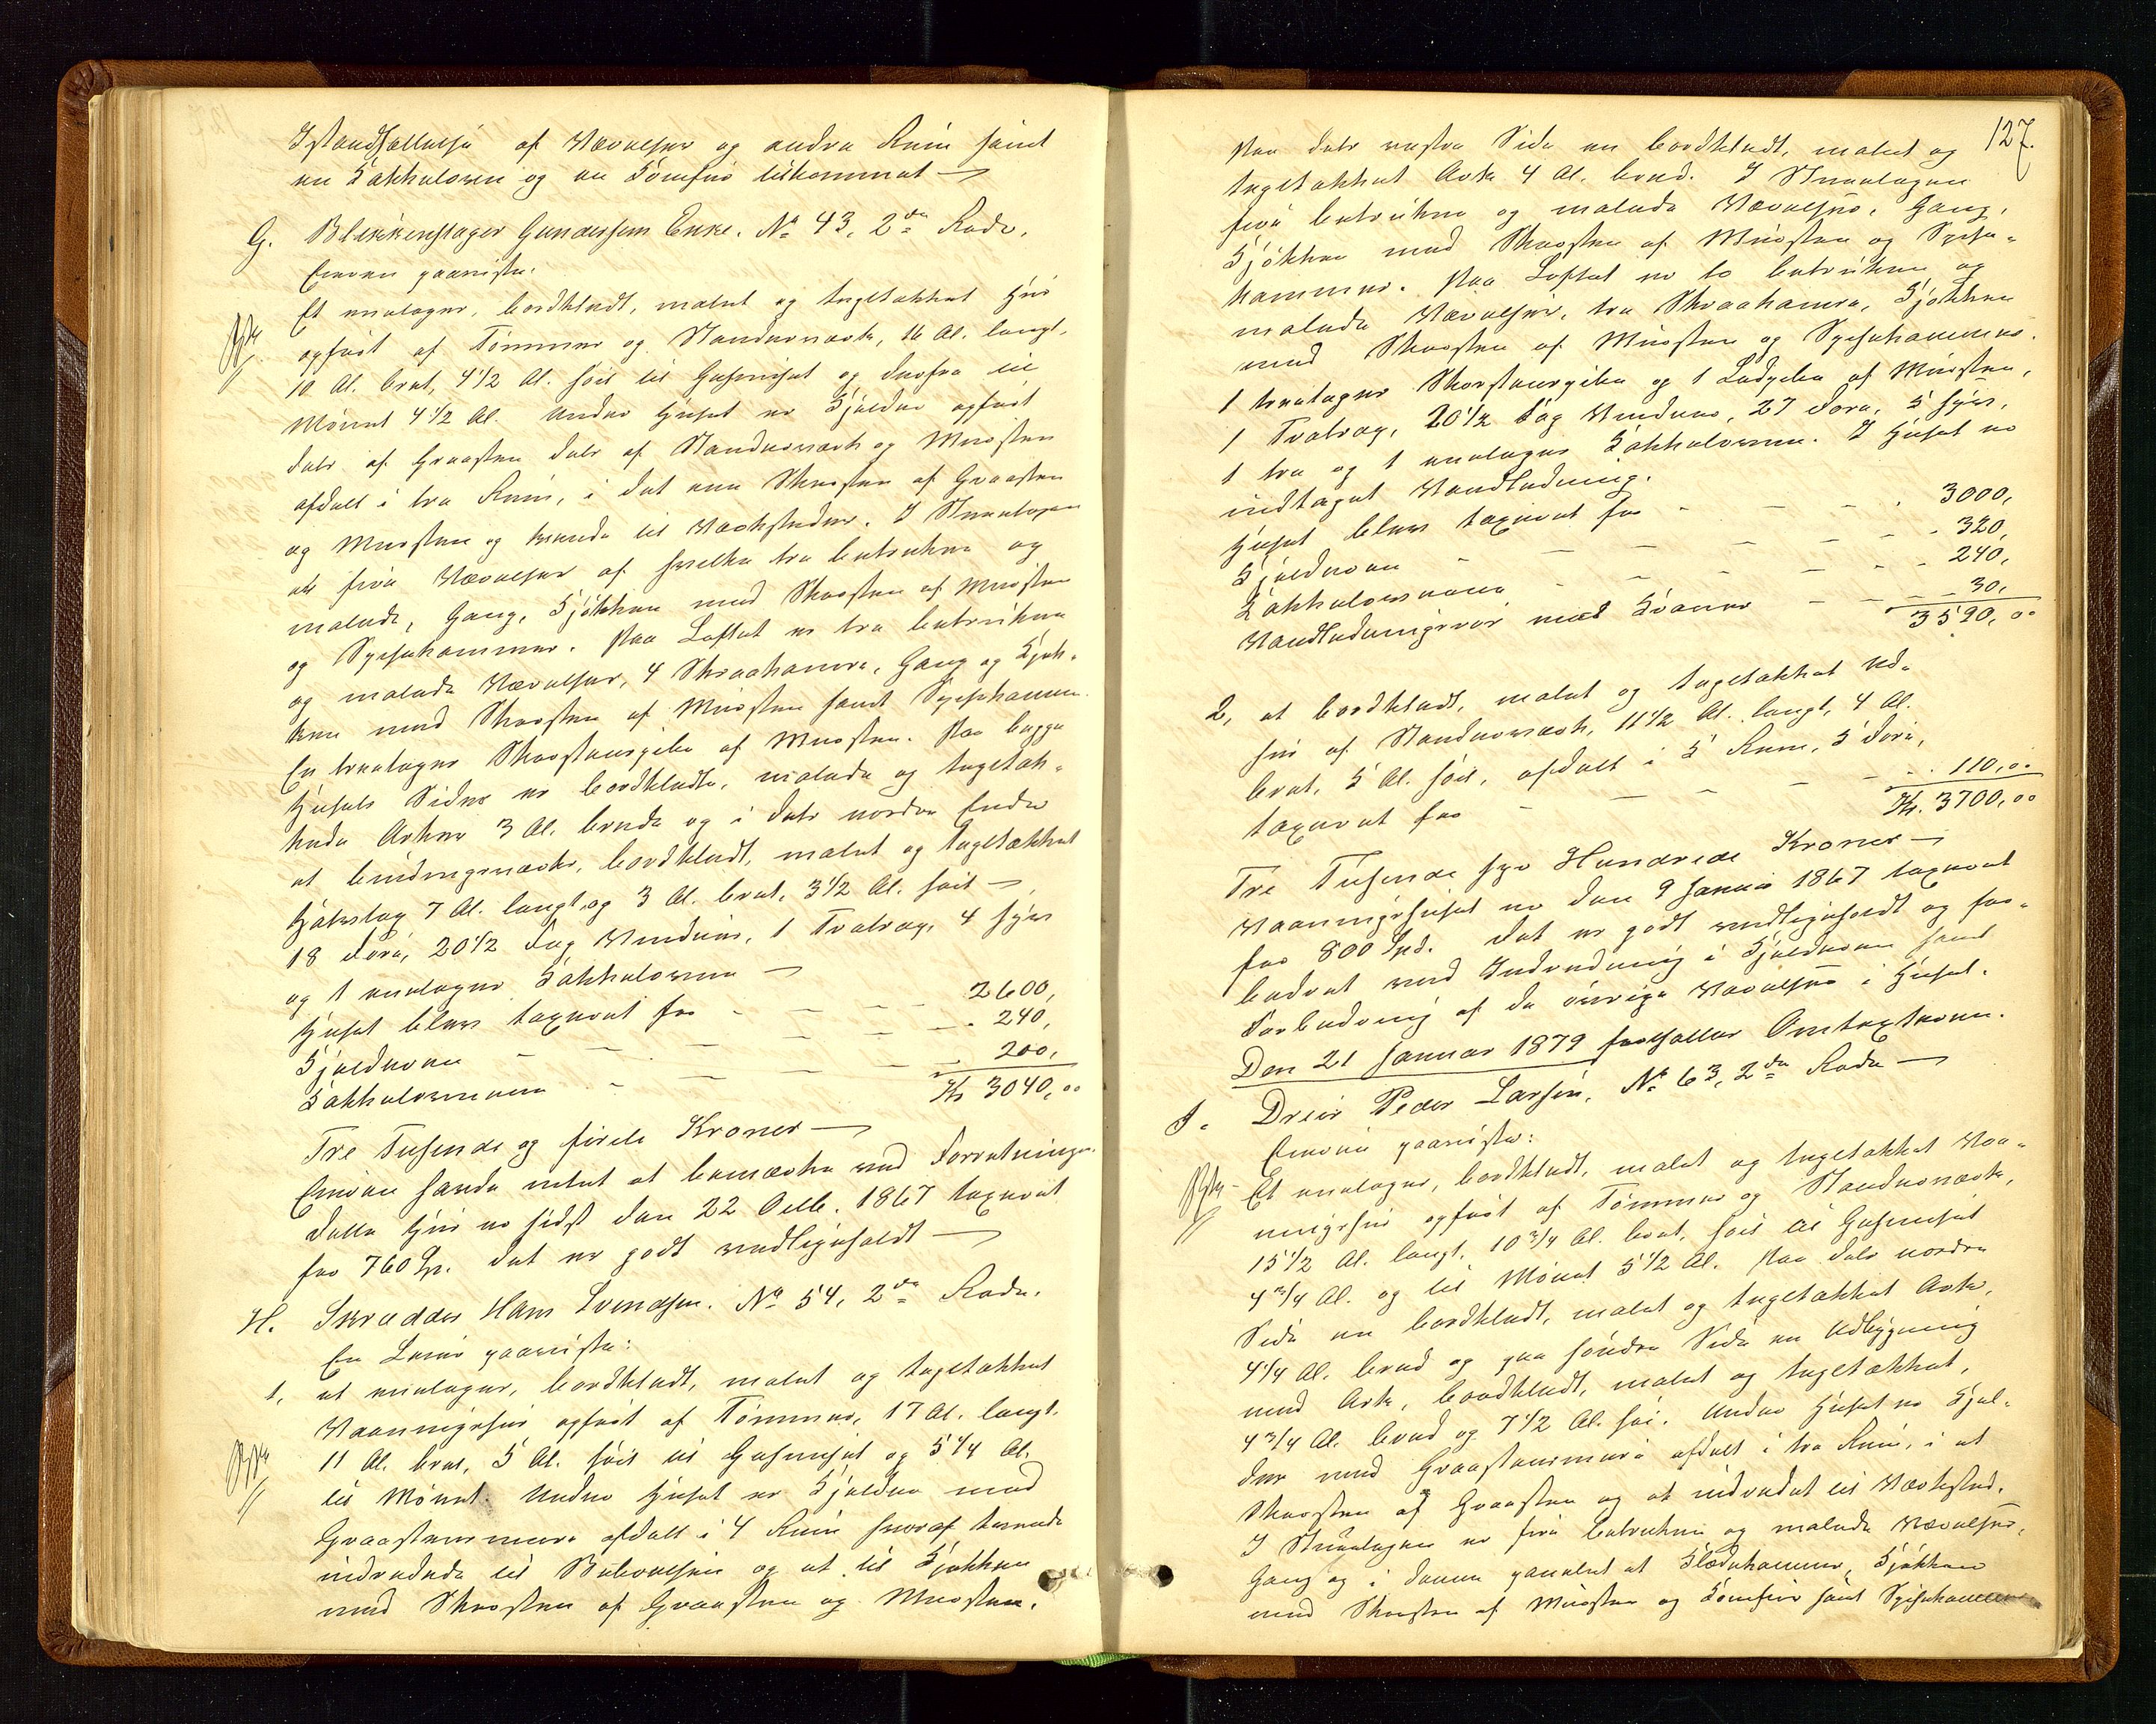 Istandsættelse af Værelser og andre Rum samt
en Kakkelovn og en Komfur tilkommet –
G. Blikkenslager Gundersens Enke. No 43, 2den Rode.
Eieren paaviste:
Et enetages, bordklædt, malet og tagtækket Huus
opført af Tømmer og Standerværk, 16 Al. langt,
10 Al. bredt, 4 1/2 Al. høit til Gesimset og derfra til
Mønnet 4 1/2 Al. Under Huset er Kjelder opført
dels af Graasten dels af Standerværk og Mursten
afdelt i tre Rum, i det ene Skorsten af Graasten
og Mursten og tvende til Værksteder. I Stueetagen
er fire Værelser af hvilke tre betrukne og
malede, Gang, Kjøkken med Skorsten af Mursten
og Spisekammer. Paa Loftet er tre betrukne
og malede Værelser, 4 Skraakamre, Gang og Kjøk-
ken med Skorsten af Mursten samt Spisekammer.
En treetages Skorstenspibe af Mursten. Paa begge
Husets Sider er bordklædte, malede og tagtæk-
kede Arker 3 Al. brede og i dets nordre Ende
et bindingsværks, bordklædt, malet og tagtækket
Halvtag 7 Al. langt og 3 Al. bredt, 3 1/2 Al. høit –
18 Døre, 20 1/2 Fag Vinduer, 1 Svalrag, 4
og 1 enetages Kakkelovne –
Huset blev taxeret for - - - 2600,
Kjelderen - - - - 240,
Kakkelovnene - - - - 200,
Kr 3040,00
Tre Tusende og firti Kroner –
Eieren havde intet at bemærke ved Forretningen.
Dette Huus er sidst den 22 Octb. 1867 taxeret
for 760 Sp. Det er godt vedligeholdt –
H. Skrædder Hans Svendsen. No 54, 2den Rode.
En Leier paaviste:
1, et enetages, bordklædt, malet og tagtækket
Vaaningshus opført af Tømmer, 17 Al. langt,
11 Al. bredt, 5 Al. høit til Gesimset og 5 1/4 Al.
til Mønnet. Under Huset er Kjelder med
Graastensmure afdelt i 4 Rum hvoraf tvende
indredede til Beboelse og et til Kjøkken
med Skorsten af Graasten og Mursten.
127.
Paa dets vestre Side en bordklædt, malet og
tagtækket Ark 4 Al. bred. I Stueetagen
fire betrukne og malede Værelser, Gang,
Kjøkken med Skorsten af Mursten og Spise-
kammer. Paa Loftet er to betrukne og
malede Værelser, tre Skraakamre, Kjøkken
med Skorsten af Mursten og Spisekammer.
1 treetages Skorstenspibe og 1 Ludpibe af Mursten,
1 Svalrag, 20 1/2 Fag Vinduer, 27 Døre, 5
1 tre og 1 enetages Kakkelovne. I Huset er
indtaget Vandledning.
Huset blev taxeret for - - - 3000,
Kjelderen - - - - 320,
Kakkelovnene - - - - 240,
Vandledningsrør med Kraner - - - 30,
3590,00
2, et bordklædt, malet og tagtækket Ud-
hus af Standerværk, 11 1/2 Al. langt, 4 Al.
bredt, 5 Al. høit, afdelt i 5 Rum, 5 Døre,
taxeret for - - - - 110,00
Kr. 3700,00
Tre Tusende syv Hundrede Kroner –
Vaaningshuset er den 9 Januar 1867 taxeret
for 800 Spd. Det er godt vedligeholdt og for-
bedret med Indredning i Kjelderen samt
Forbedring af de øvrige Værelser i Huset.
Den 21 Januar 1879 fortsattes Omtaxterne.
I. Dreier Peder Larsen, No 63, 2den Rode –
Eieren paaviste:
Et enetages, bordklædt, malet og tagtækket Vaa-
ningshus opført af Tømmer og Standerværk,
15 1/2 Al. langt, 10 3/4 Al. bredt, høit til Gesimset
4 3/4 Al. og til Mønnet 5 1/2 Al. Paa dets nordre
Side en bordklædt, malet og tagtækket Ark,
4 1/4 Al. bred og paa søndre Side en Udbygning
med Ark, bordklædt, malet og tagtækket,
4 3/4 Al. bred og 7 1/2 Al. høi. Under Huset er Kjel-
der med Graastensmure afdelt i tre Rum, i et
Skorsten af Graasten og et indredet til Værksted.
I Stueetagen er fire betrukne og malede Værelser,
Gang og i denne panelet et Klædekammer, Kjøkken
med Skorsten af Mursten og Komfur samt Spisekammer